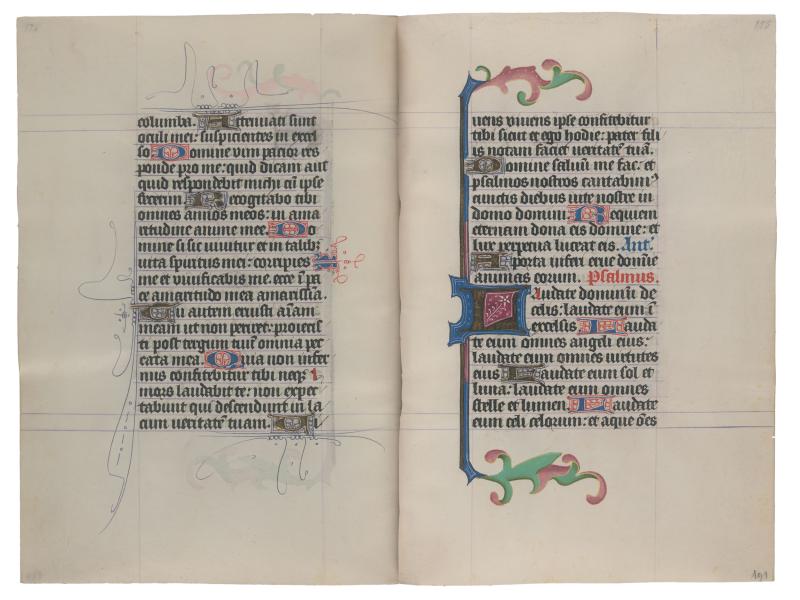 columba. Attenuati sunt
oculi mei: suspicientes in excel
so Domine vim pacior res
ponde pro me: quid dicam aut
quid respondebit michi cũ ipse
fecerim. Recogitabo tibi
omnes annos meos: in ama
ritudine anime mee. Do
mine si sic vivitur et in talibꝫ
vita spiritus mei: corripies
me et vivificabis me. ecce ĩ pa
ce amaritudo mea amarissĩa.
Tu autem eruisti aĩam
meam ut non periret: proiecis
ti post tergum tuũ omnia pec
cata mea. Quia non infer
nus confitebitur tibi neqꝫ
mors laudabit te: non expec
tabunt qui descendunt in la
cum veritatẽ tuam. Vi
vens vivens ipse confitebitur
tibi sicut et ego hodie: pater fili
is notam faciet veritatẽ tuã.
Domine salvũ me fac: et
psalmos nostros cantabimꝰ
cunctis diebus vite nostre in
domo domini Requiem
eternam dona eis domine: et
lux perpetua luceat eis. Ant̃.
A porta inferi erue domĩe
animas eorum. Psalmus.
Laudate dominũ de
celis: laudate eum ĩ
excelsis. Lauda
te eum omnes angeli eius:
laudate eum omnes virtutes
eius Laudate eum sol et
luna: laudate eum omnes
stelle et lumen. Laudate
eum celi celorum: et aque ões
191